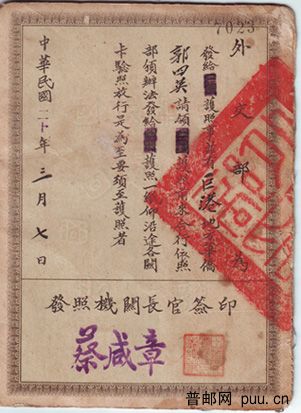 7023
外交部為
發給護照事茲有巨港
郭四英請領護照來行依照
部頒辦法發給護照一紙仰沿途各關
卡驗照放行是為至要須至護照者
中華民國二十年三月七日
發照機關長官簽印
蔡咸章
普邮网 puu.cn